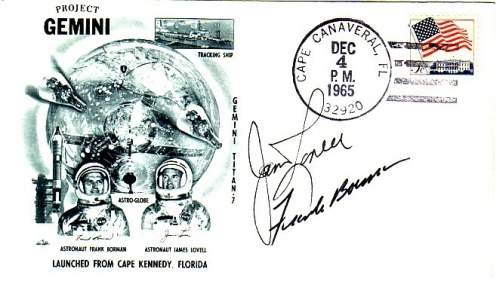 PROJECT
GEMINI
TRACKING SHIP
GEMINI TITAN-7
ASTRO-GLOBE
Frank Borman
James Lovell
ASTRONAUT FRANK BORMAN
ASTRONAUT JAMES LOVELL
LAUNCHED FROM CAPE KENNEDY, FLORIDA
CAPE CANAVERAL, FL
DEC
4
P.M.
1965
32920
James Lovell
Frank Borman